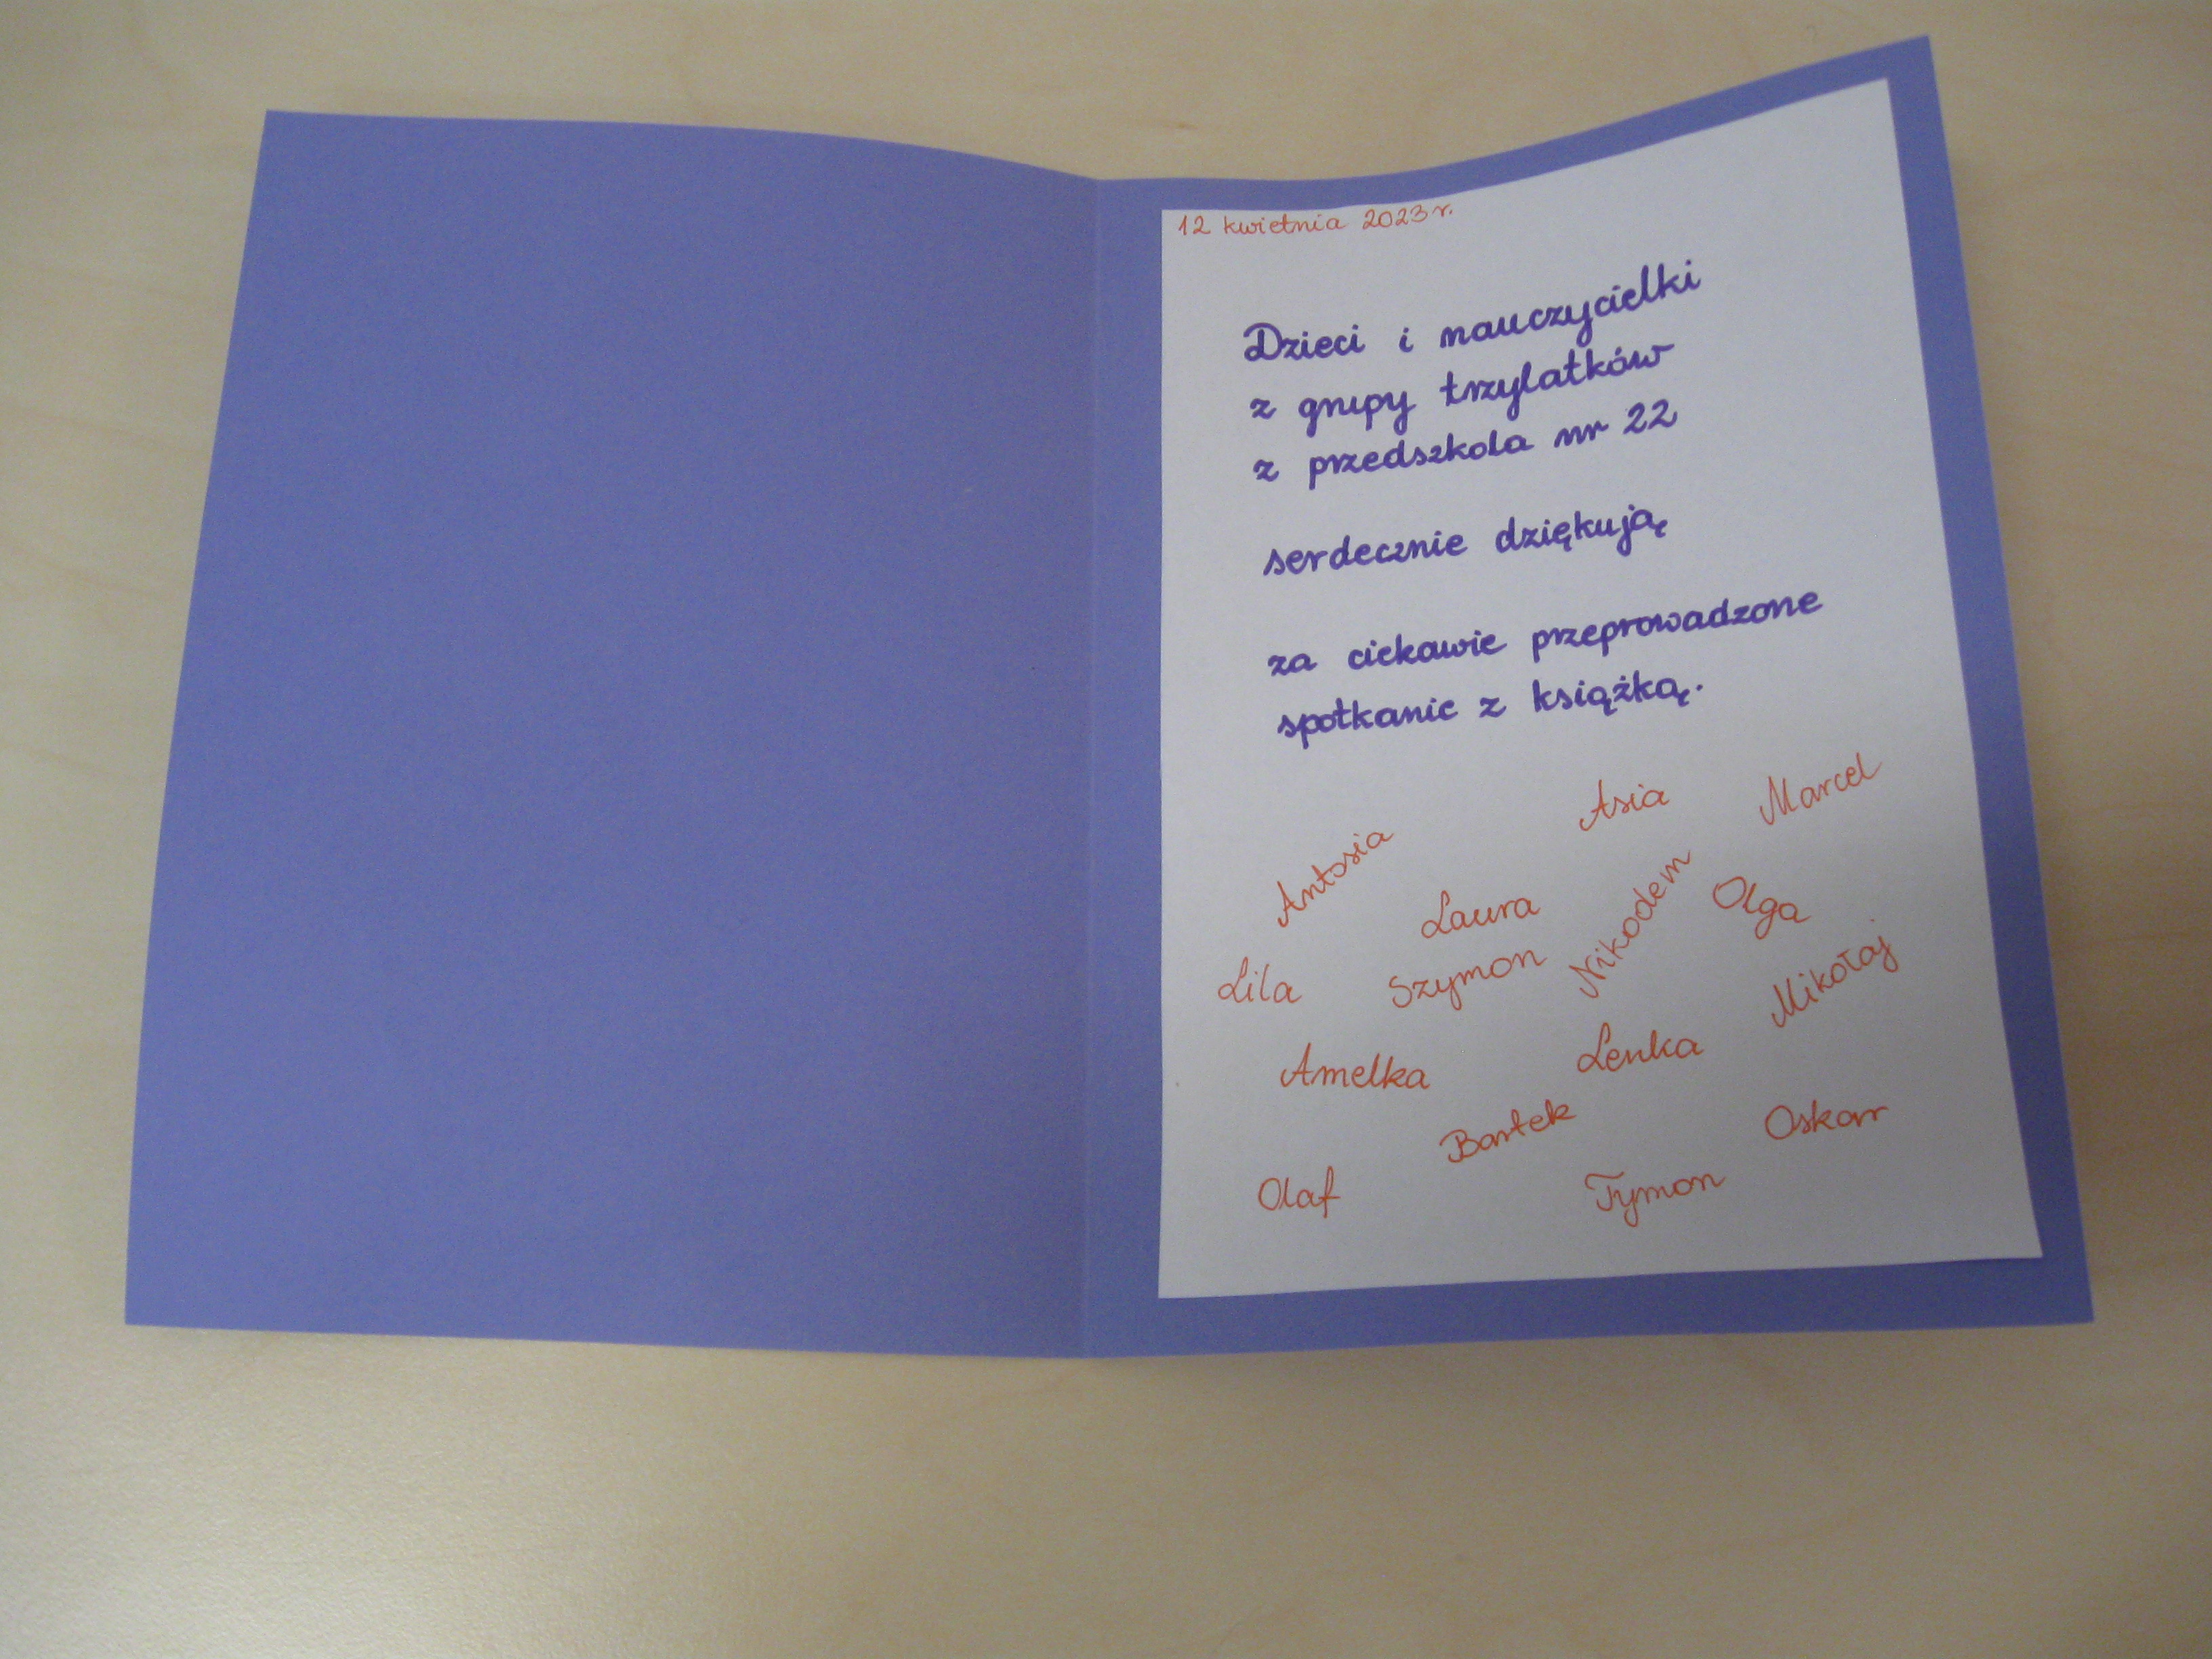 12 kwietnia 2023 r.
Dzieci i nauczycielki
z grupy trzylatków
z przedszkola nr 22
serdecznie dziękują
za ciekawie przeprowadzone
spotkanie z książką.
Antosia
Asia
Marcel
Laura
Nikodem
Olga
Lila
Szymon
Mikołaj
Amelka
Lenka
Bartek
Oskar
Olaf
Tymon